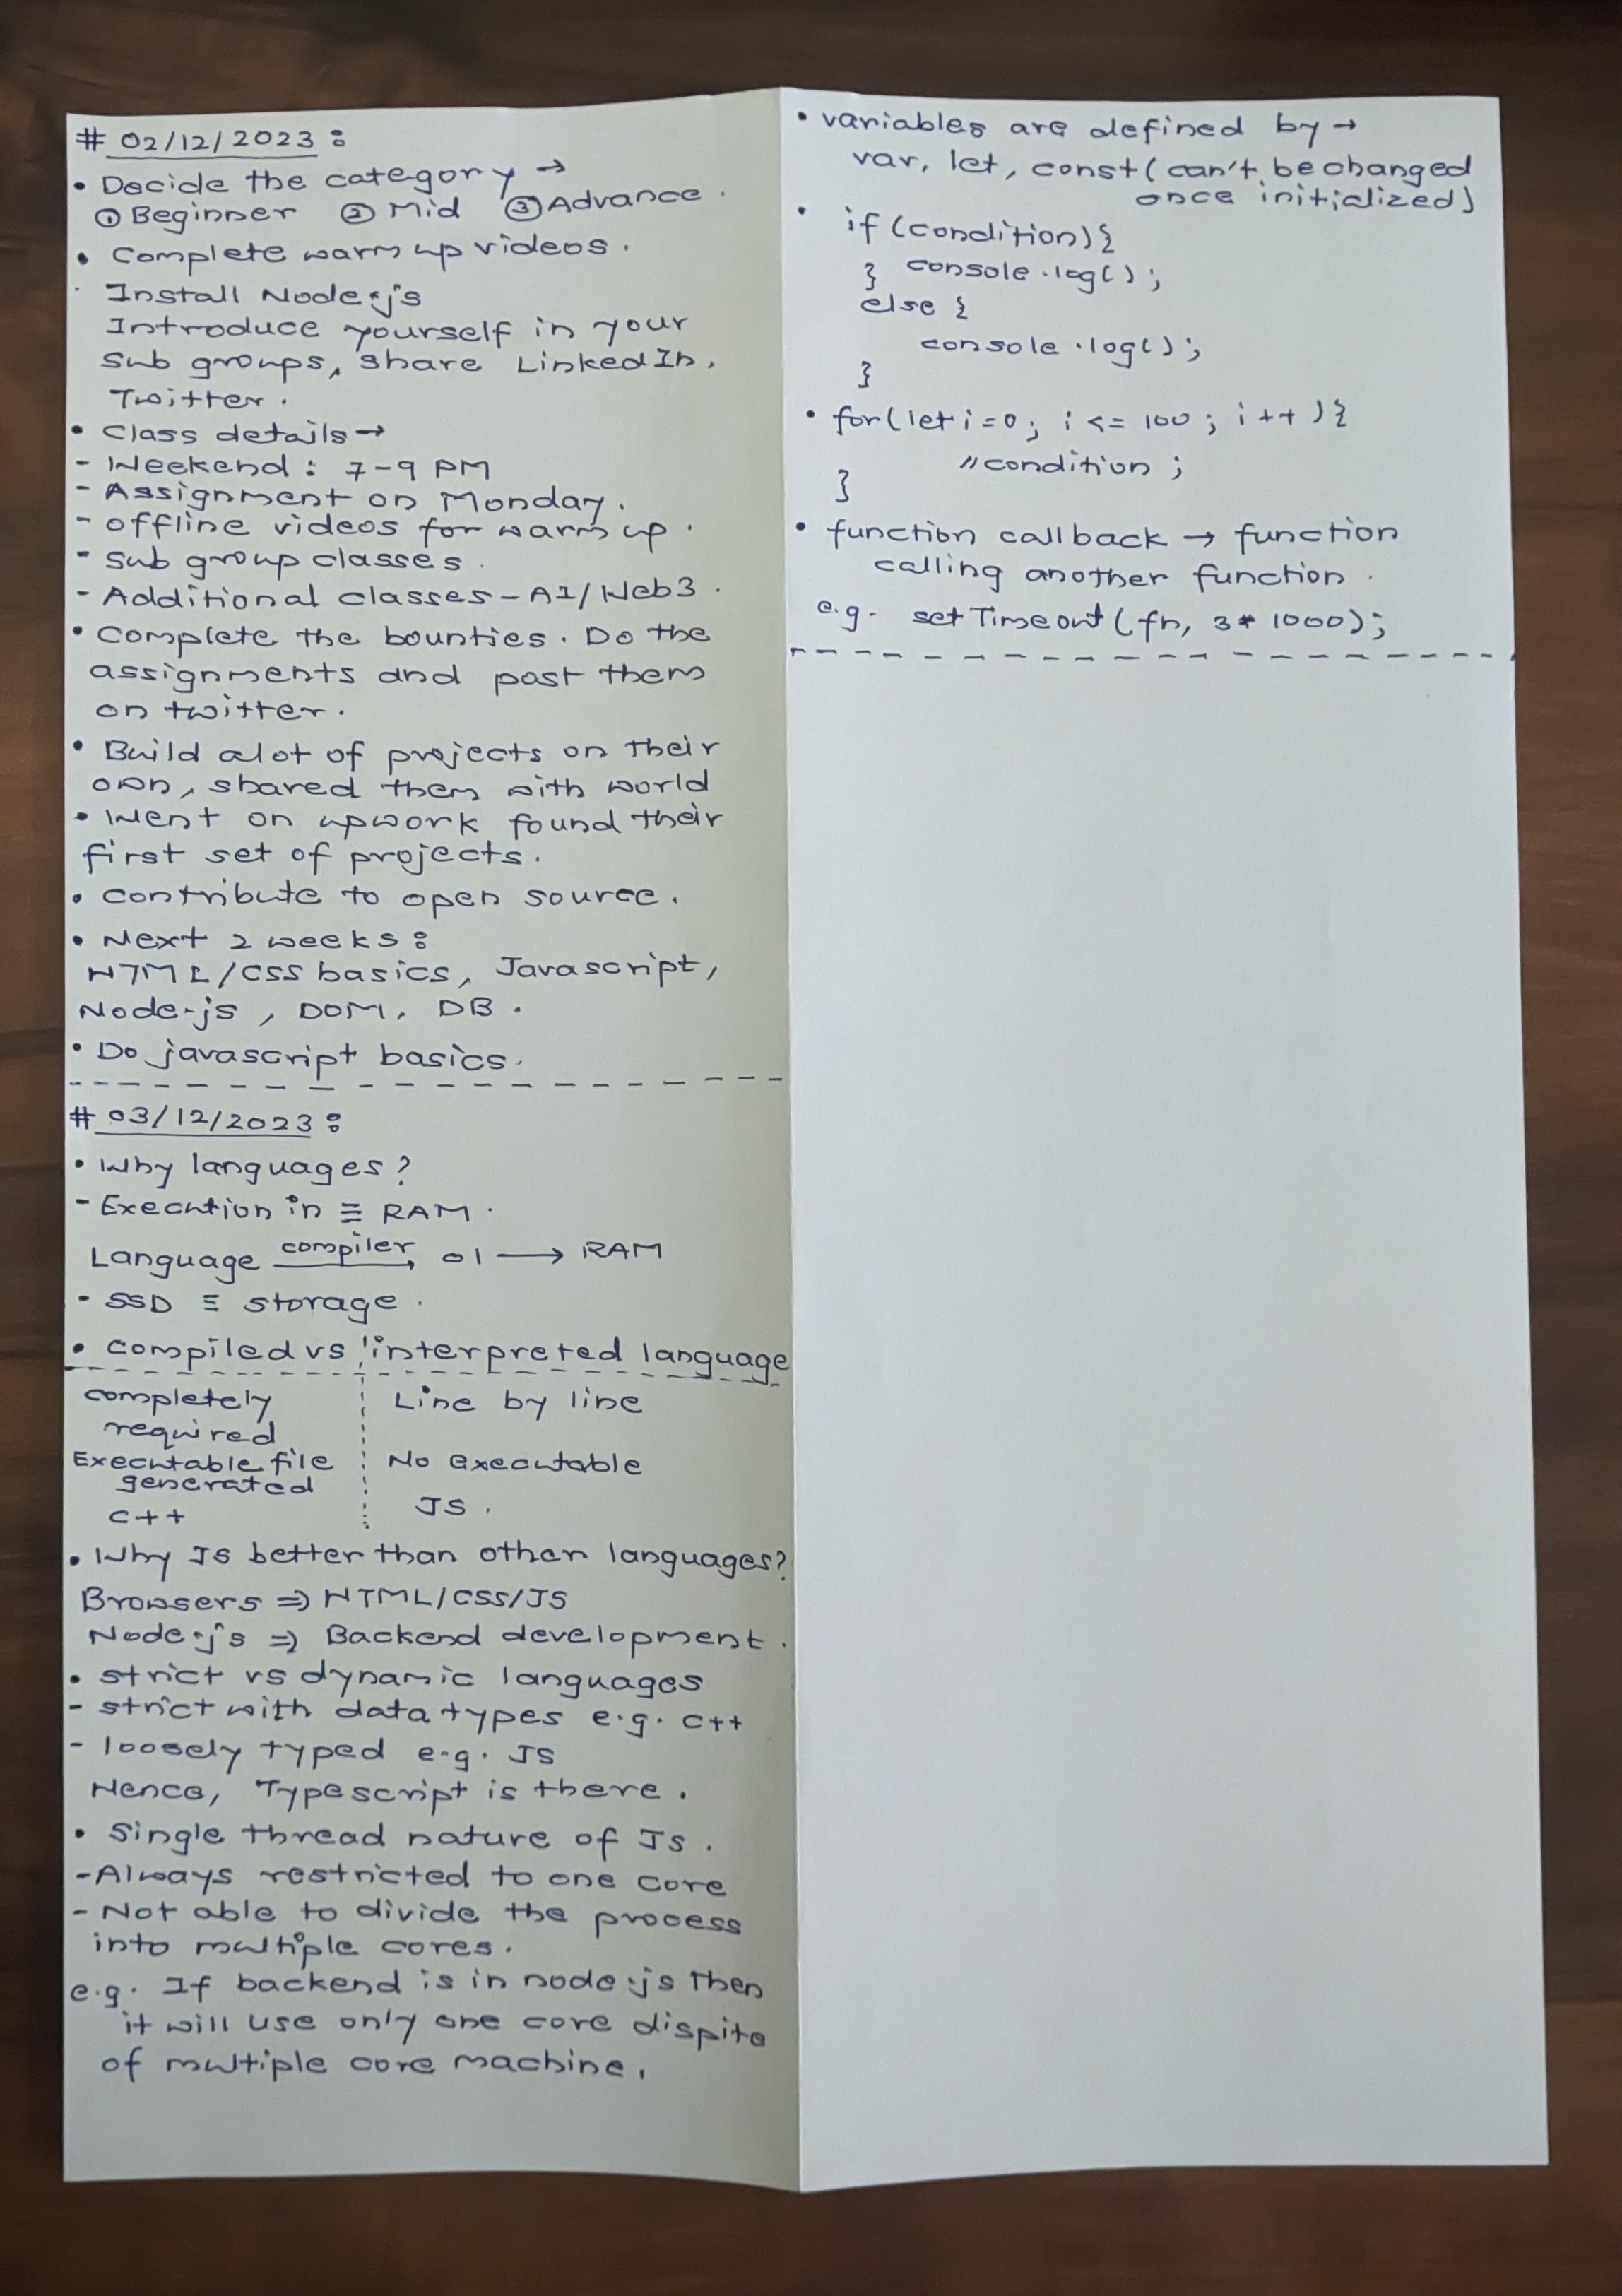 # 02/12/2023 :
• Decide the category →
① Beginner ② Mid ③ Advance.
• Complete warm up videos.
· Install Node.js
Introduce yourself in your
sub groups, share LinkedIn,
Twitter.
• Class details →
- Weekend : 7-9 PM
- Assignment on Monday.
- offline videos for warm up.
- sub group classes.
- Additional classes - AI/Web3.
• Complete the bounties. Do the
assignments and post them
on twitter.
• Build alot of projects on their
own, shared them with world
• Went on upwork found their
first set of projects.
• contribute to open source.
• Next 2 weeks :
HTML/CSS basics, Javascript,
Node.js, DOM, DB.
• Do javascript basics.
# 03/12/2023 :
• Why languages?
- Execution in ≡ RAM.
Language compiler→ 01 → RAM
- SSD ≡ storage.
• compiled vs interpreted language
completely Line by line
required
Executable file No executable
generated
C++ JS.
• Why JS better than other languages?
Browsers ⇒ HTML/CSS/JS
Node.js ⇒ Backend development.
• strict vs dynamic languages
- strict with data types e.g. C++
- loosely typed e.g. JS
Hence, Typescript is there.
• Single thread nature of JS.
- Always restricted to one core
- Not able to divide the process
into multiple cores.
e.g. If backend is in node.js then
it will use only one core dispite
of multiple core machine.
• variables are defined by →
var, let, const (can't be changed
once initialized)
• if (condition) {
} console.log();
else {
console.log();
}
• for(let i=0; i<=100; i++){
//condition;
}
• function callback → function
calling another function.
e.g. setTimeout(fn, 3*1000);